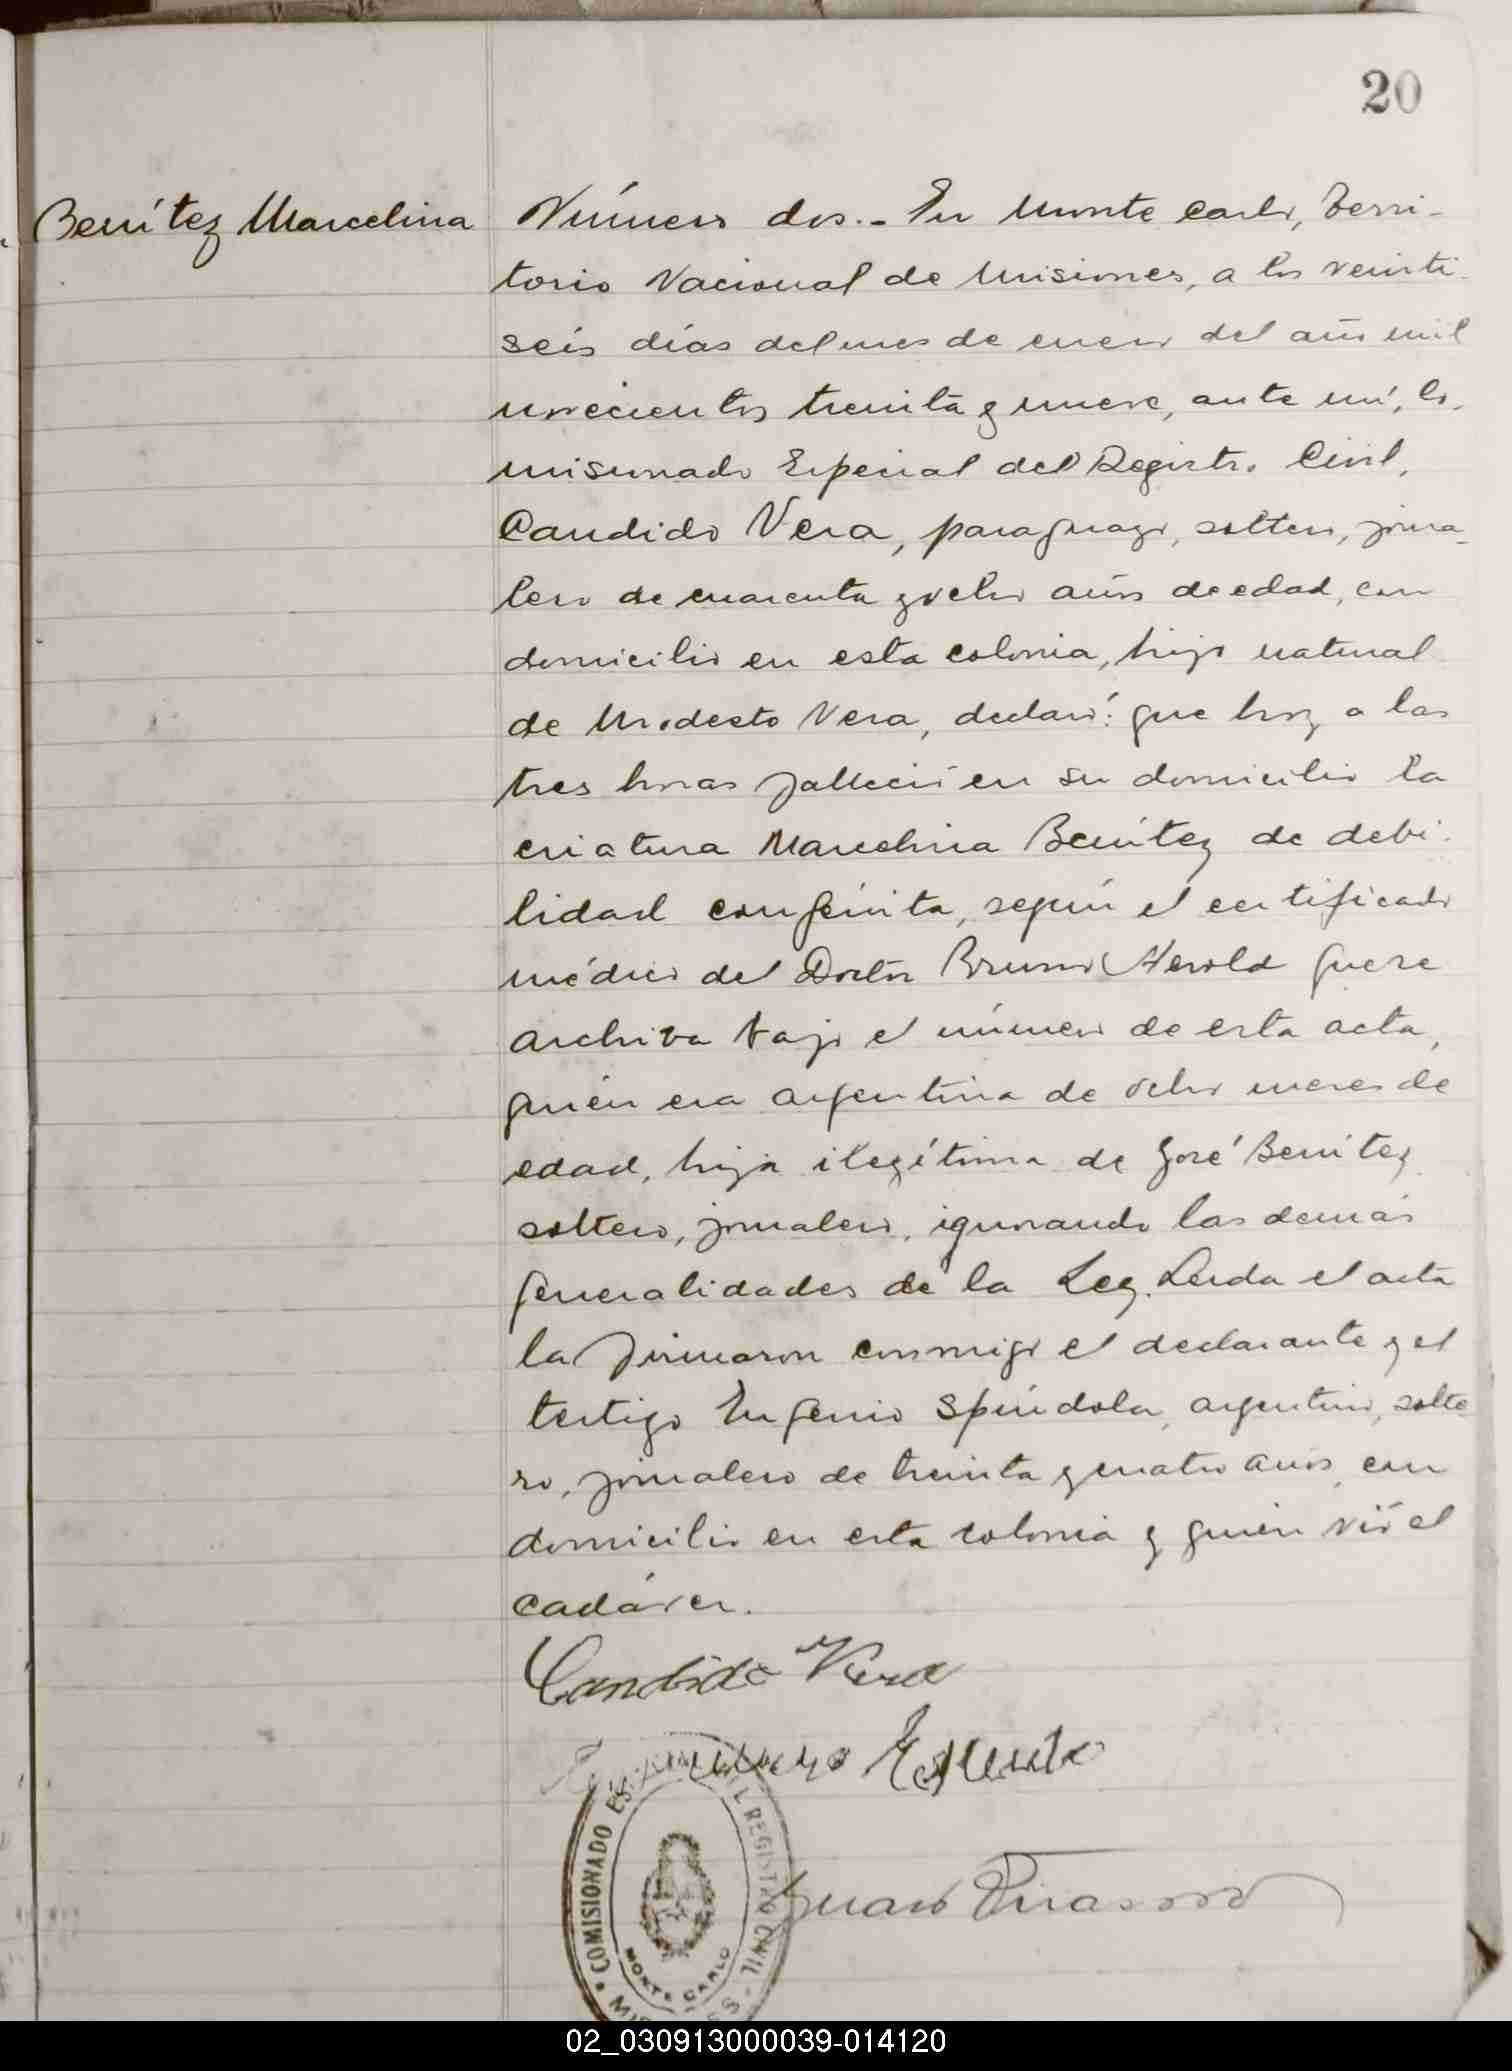 20
Benítez Marcelina
Número dos.- En Monte Carlo, Terri-
torio Nacional de Misiones, a los veinti-
seis días del mes de enero del año mil
novecientos treinta y nueve, ante mí, Co-
misionado Especial del Registro Civil,
Candido Vera, paraguayo, soltero, jorna-
lero de cuarenta y ocho años de edad, con
domicilio en esta colonia, hijo natural
de Modesto Vera, declaró: que hoy a las
tres horas falleció en su domicilio la
criatura Marcelina Benítez de debi-
lidad congénita, según el certificado
médico del Doctor Bruno Herold que se
archiva bajo el número de esta acta,
quién era argentina de ocho meses de
edad, hija ilegítima de José Benítez
soltero, jornalero, ignorando las demás
generalidades de la Ley. Leída el acta
la firmaron conmigo el declarante y el
testigo Eugenio Spíndola, argentino, solte-
ro, jornalero de treinta y cuatro años, con
domicilio en esta colonia y quién vió el
cadáver.
Candido Vera
COMISIONADO ESPECIAL DEL REGISTRO CIVIL
MONTE CARLO
MISIONES
02_030913000039-014120